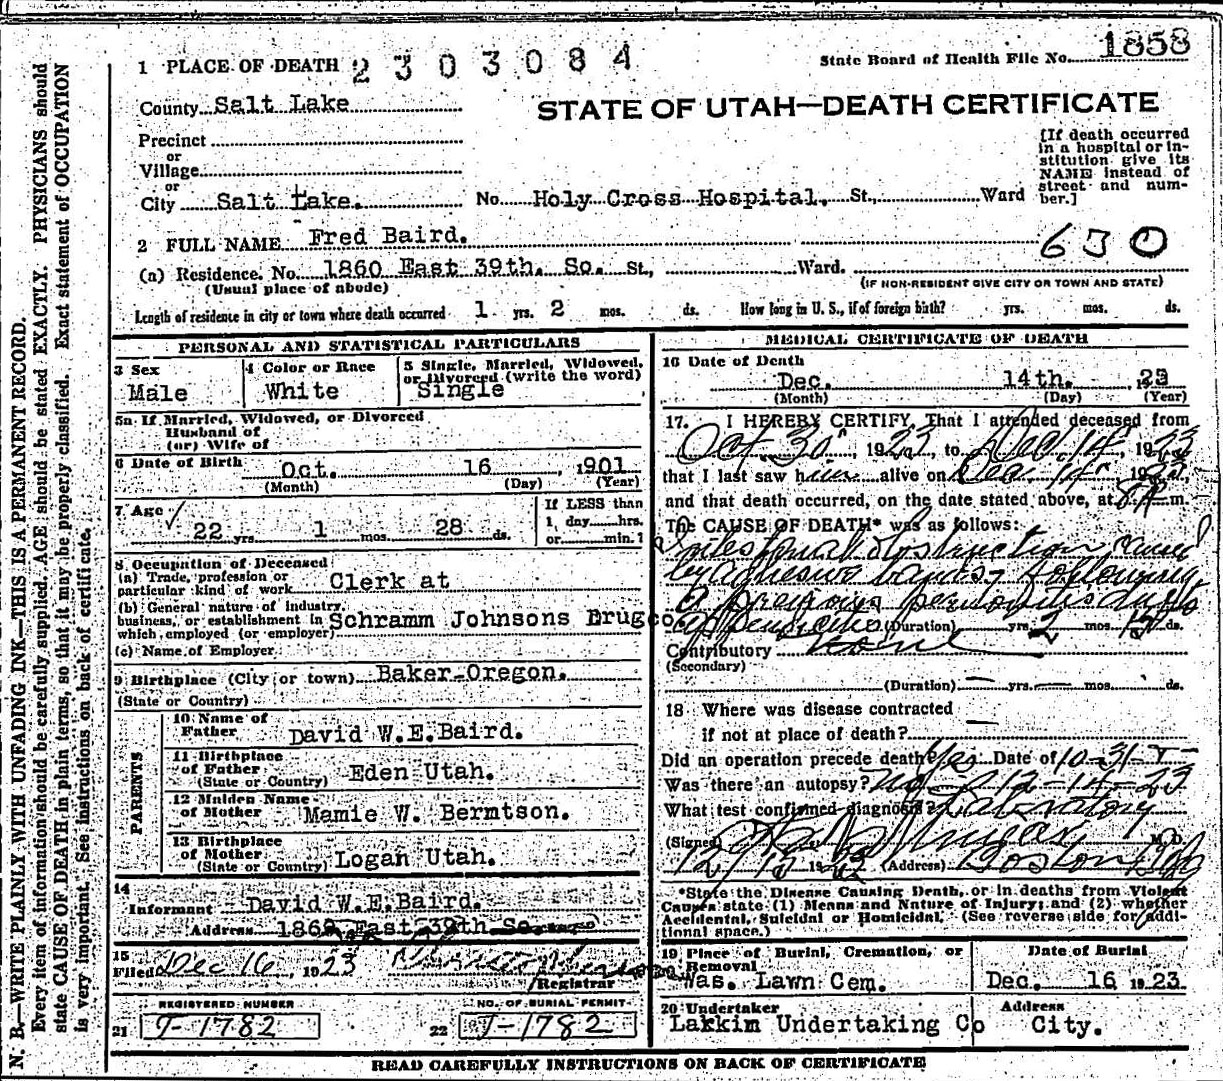 State Board of Health File No. 1858
1 PLACE OF DEATH 2303084
County Salt Lake
STATE OF UTAH—DEATH CERTIFICATE
Precinct
or
Village
or
City Salt Lake. No. Holy Cross Hospital. St., Ward
[If death occurred
in a hospital or in-
stitution give its
NAME instead of
street and num-
ber.]
2 FULL NAME Fred Baird.
630
(a) Residence. No. 1860 East 39th. So. St., Ward.
(Usual place of abode)
(IF NON-RESIDENT GIVE CITY OR TOWN AND STATE)
Length of residence in city or town where death occurred 1 yrs. 2 mos. ds. How long in U. S., if of foreign birth? yrs. mos. ds.
PERSONAL AND STATISTICAL PARTICULARS
3 Sex
Male
4 Color or Race
White
5 Single, Married, Widowed,
or Divorced (write the word)
Single
5a If Married, Widowed, or Divorced
Husband of
(or) Wife of
6 Date of Birth Oct. 16, 1901
(Month) (Day) (Year)
7 Age
22 yrs. 1 mos. 28 ds.
If LESS than
1 day hrs.
or min.?
8 Occupation of Deceased
(a) Trade, profession or
particular kind of work Clerk at
(b) General nature of industry,
business, or establishment in
which employed (or employer) Schramm Johnsons Drugco
(c) Name of Employer
9 Birthplace (City or town) Baker Oregon.
(State or Country)
PARENTS
10 Name of
Father David W.E.Baird.
11 Birthplace
of Father
(State or Country) Eden Utah.
12 Maiden Name
of Mother Mamie W. Berntson.
13 Birthplace
of Mother
(State or Country) Logan Utah.
14
Informant David W.E.Baird.
Address 1860 East 39th So.
15
Filed Dec 16, 1923
Registrar
REGISTERED NUMBER
21 J-1782
NO. OF BURIAL PERMIT
22 J-1782
MEDICAL CERTIFICATE OF DEATH
16 Date of Death
Dec. 14th. , 1923
(Month) (Day) (Year)
17. I HEREBY CERTIFY, That I attended deceased from
Oct. 30, 1923, to Dec. 14, 1923
that I last saw him alive on Dec. 14, 1923,
and that death occurred, on the date stated above, at m.
The CAUSE OF DEATH* was as follows:
Intestinal obstruction caused
by adhesive bands following
previous peritonitis due to
appendicitis (Duration) yrs. 2 mos. ds.
Contributory none
(Secondary)
(Duration) yrs. mos. ds.
18 Where was disease contracted
if not at place of death?
Did an operation precede death? Yes Date of 10-31-
Was there an autopsy? 12-14-23
What test confirmed diagnosis? Laboratory
(Signed) M. D.
12/15 1923 (Address) Boston Bldg
*State the Disease Causing Death, or in deaths from Violent
Causes state (1) Means and Nature of Injury; and (2) whether
Accidental, Suicidal or Homicidal. (See reverse side for addi-
tional space.)
19 Place of Burial, Cremation, or
Removal
Was. Lawn Cem.
Date of Burial
Dec. 16 1923.
20 Undertaker
Larkin Undertaking Co
Address
City.
READ CAREFULLY INSTRUCTIONS ON BACK OF CERTIFICATE
N. B.—WRITE PLAINLY WITH UNFADING INK—THIS IS A PERMANENT RECORD.
Every item of information should be carefully supplied. AGE should be stated EXACTLY. PHYSICIANS should
state CAUSE OF DEATH in plain terms, so that it may be properly classified. Exact statement of OCCUPATION
is very important. See instructions on back of certificate.